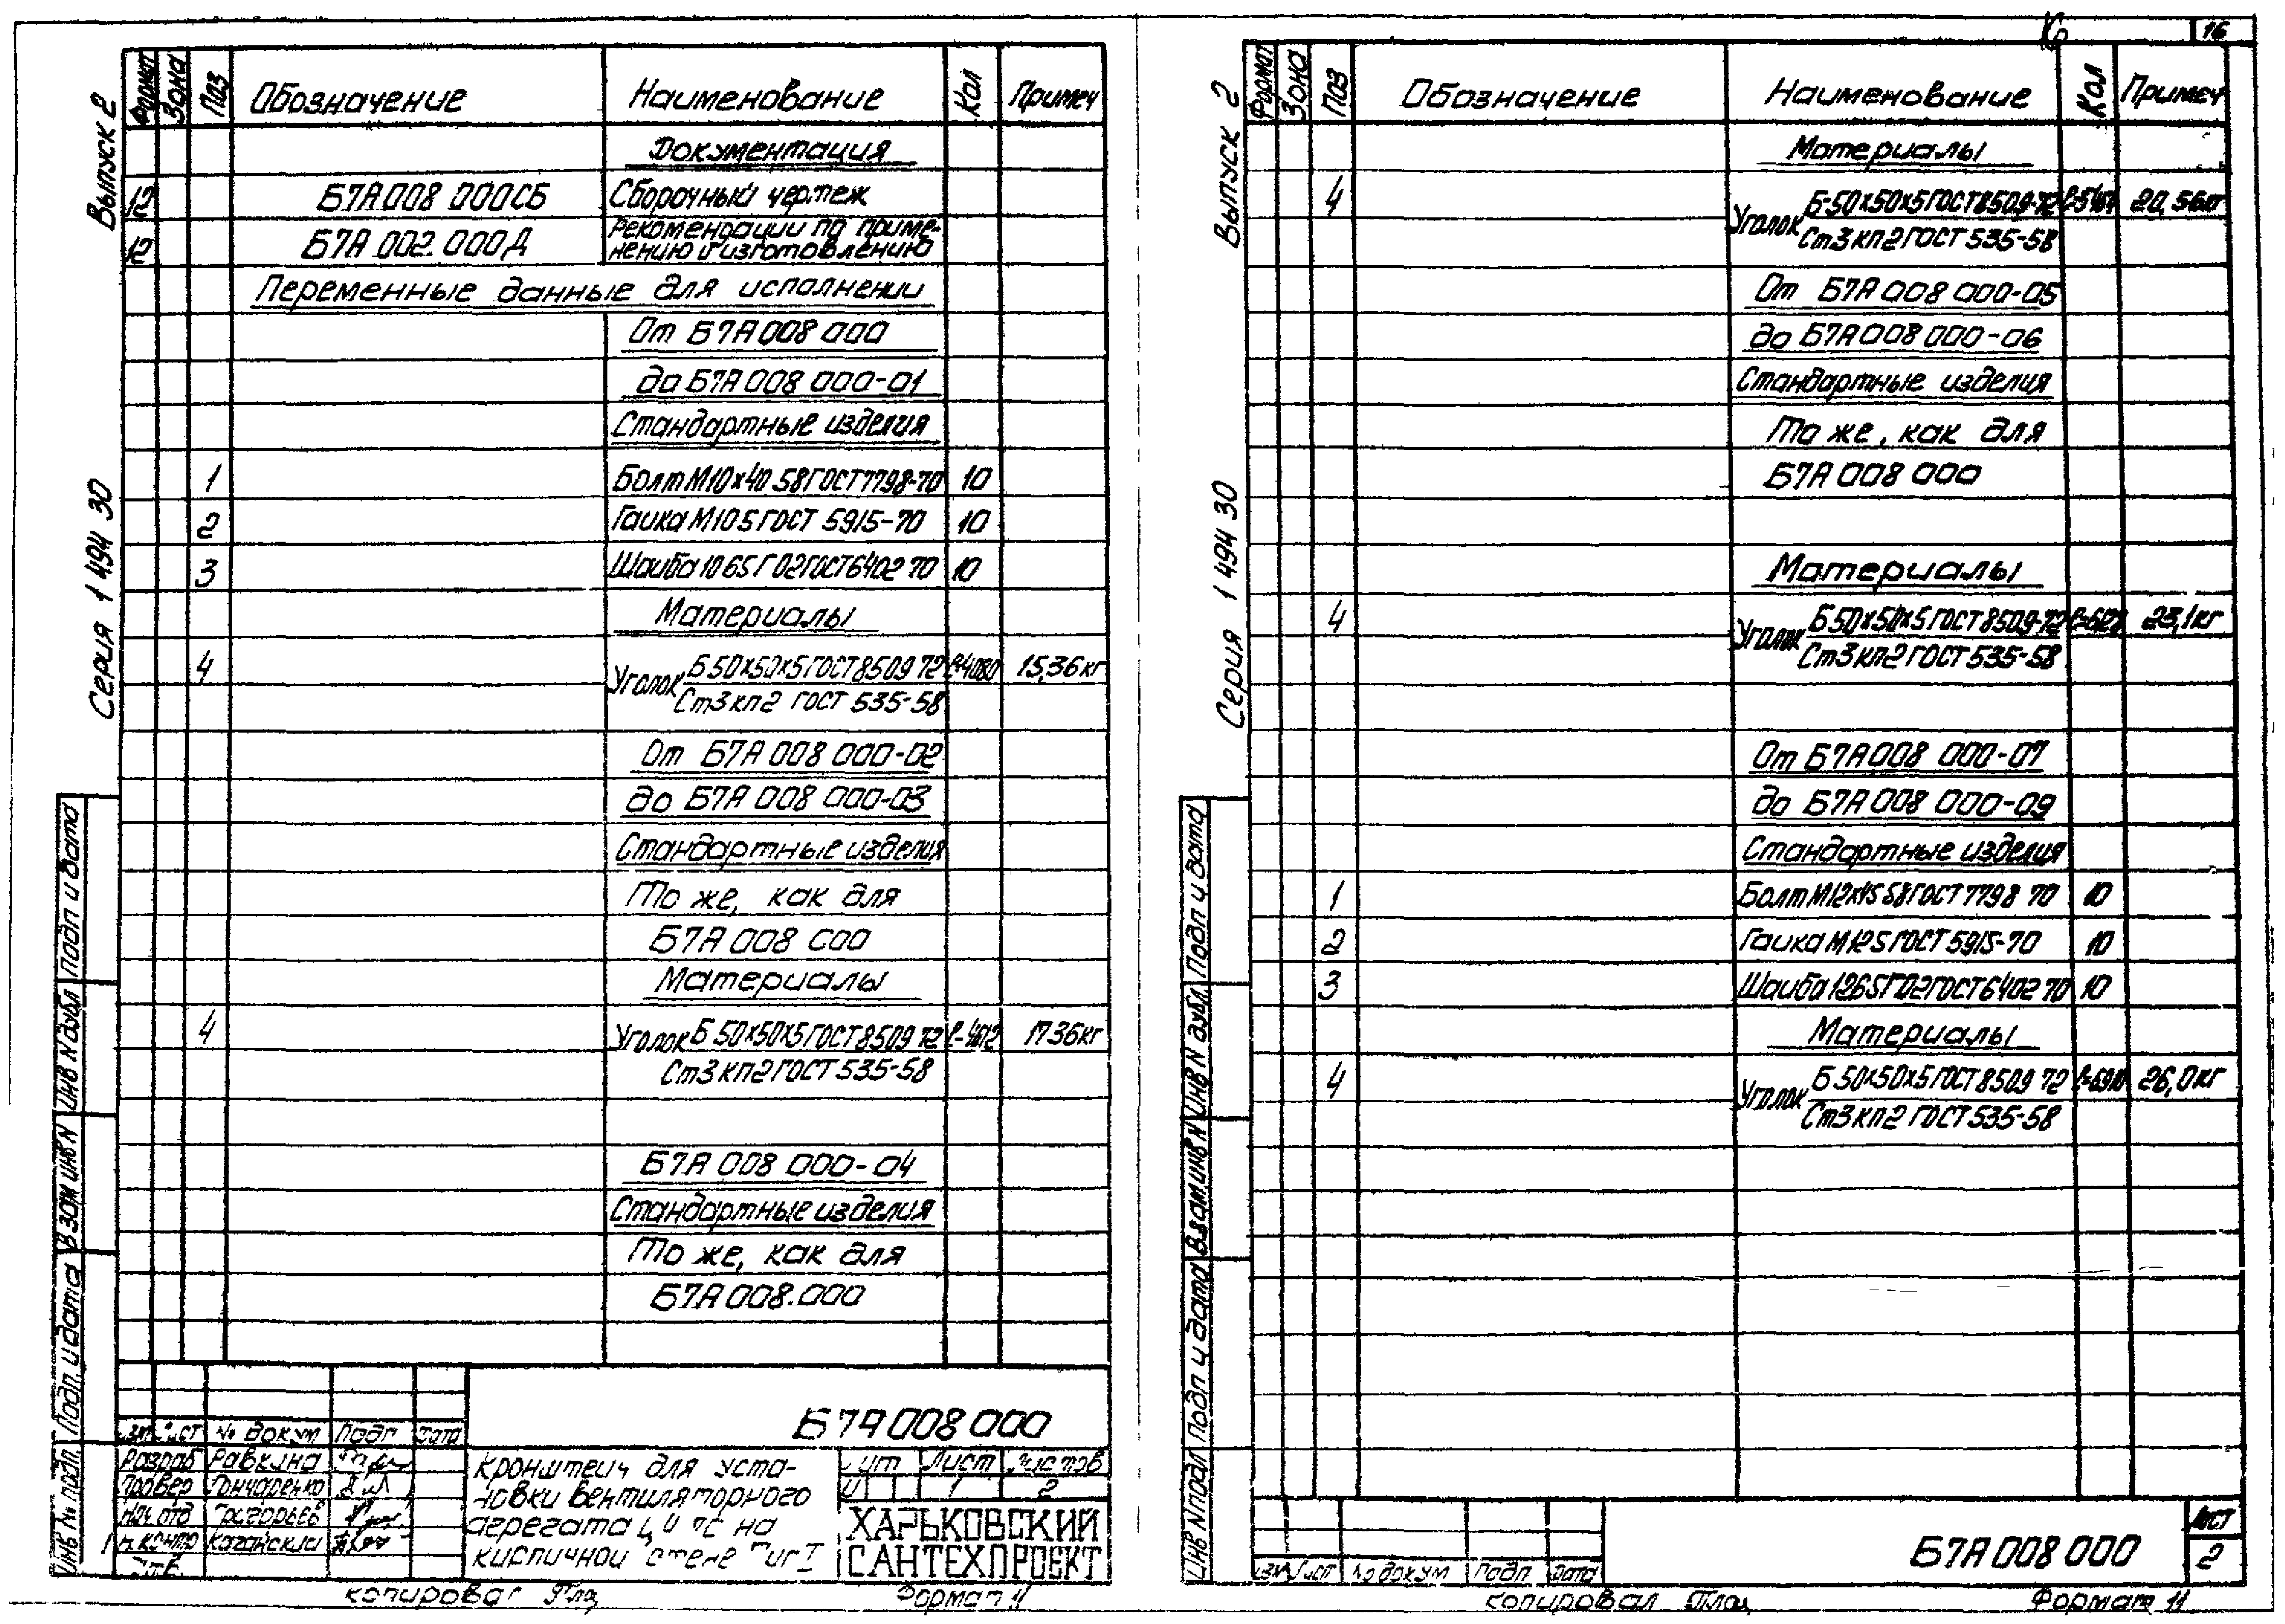 Выпуск 2
Серия 1 494 30
Формат Зона Поз Обозначение Наименование Кол Примеч
Документация
12 Б7А008 000СБ Сборочный чертеж
12 Б7А.002.000Д Рекомендации по приме-
нению и изготовлению
Переменные данные для исполнении
От Б7А008 000
до Б7А008 000-01
Стандартные изделия
1 Болт М10х40 58 ГОСТ7798-70 10
2 Гаика М10 5 ГОСТ 5915-70 10
3 Шаиба 10 65Г 02 ГОСТ6402 70 10
Материалы
4 Уголок Б 50х50х5 ГОСТ 8509 72 ℓ-4080 15,36кг
Ст3 кп2 ГОСТ 535-58
От Б7А 008 000-02
до Б7А 008 000-03
Стандартные изделия
То же, как для
Б7А 008 000
Материалы
4 Уголок Б 50х50х5 ГОСТ 8509 72 ℓ-4612 17 36кг
Ст3 кп2 ГОСТ 535-58
Б7А 008 000-04
Стандартные изделия
То же, как для
Б7А 008.000
Подп и дата
Инв N дубл
Взам инв N
Подп. и дата
Инв № подл.
лист № докум Подп Дата
Разраб Равкина
Провер Гончаренко
Нач отд Григорьев
Н. контр Каганский
Утв.
Б7А 008 000
Кронштеин для уста-
новки вентиляторного
агрегата на
кирпичнои стене Тип I
Лит Лист Листов
1 2
ХАРЬКОВСКИЙ
САНТЕХПРОЕКТ
копировал
Формат 11
16
Выпуск 2
Серия 1 494 30
Формат Зона Поз Обозначение Наименование Кол Примеч
Материалы
4 Уголок Б-50х50х5 ГОСТ 8509-72 20,56кг
Ст3 кп2 ГОСТ 535-58
От Б7А 008 000-05
до Б7А 008 000-06
Стандартные изделия
То же, как для
Б7А 008 000
Материалы
4 Уголок Б 50х50х5 ГОСТ 8509-72 23,1кг
Ст3 кп2 ГОСТ 535-58
От Б7А 008 000-07
до Б7А 008 000-09
Стандартные изделия
1 Болт М12х45 58 ГОСТ 7798 70 10
2 Гаика М12 5 ГОСТ 5915-70 10
3 Шаиба 12 65Г 02 ГОСТ 6402 70 10
Материалы
4 Уголок Б 50х50х5 ГОСТ 8509 72 ℓ=6910 26,0кг
Ст3 кп2 ГОСТ 535-58
Подп и дата
Инв N дубл.
Взам.инв N
Подп и дата
Инв N подл
лист № докум Подп Дата
Б7А 008 000
Лист
2
копировал
Формат 11